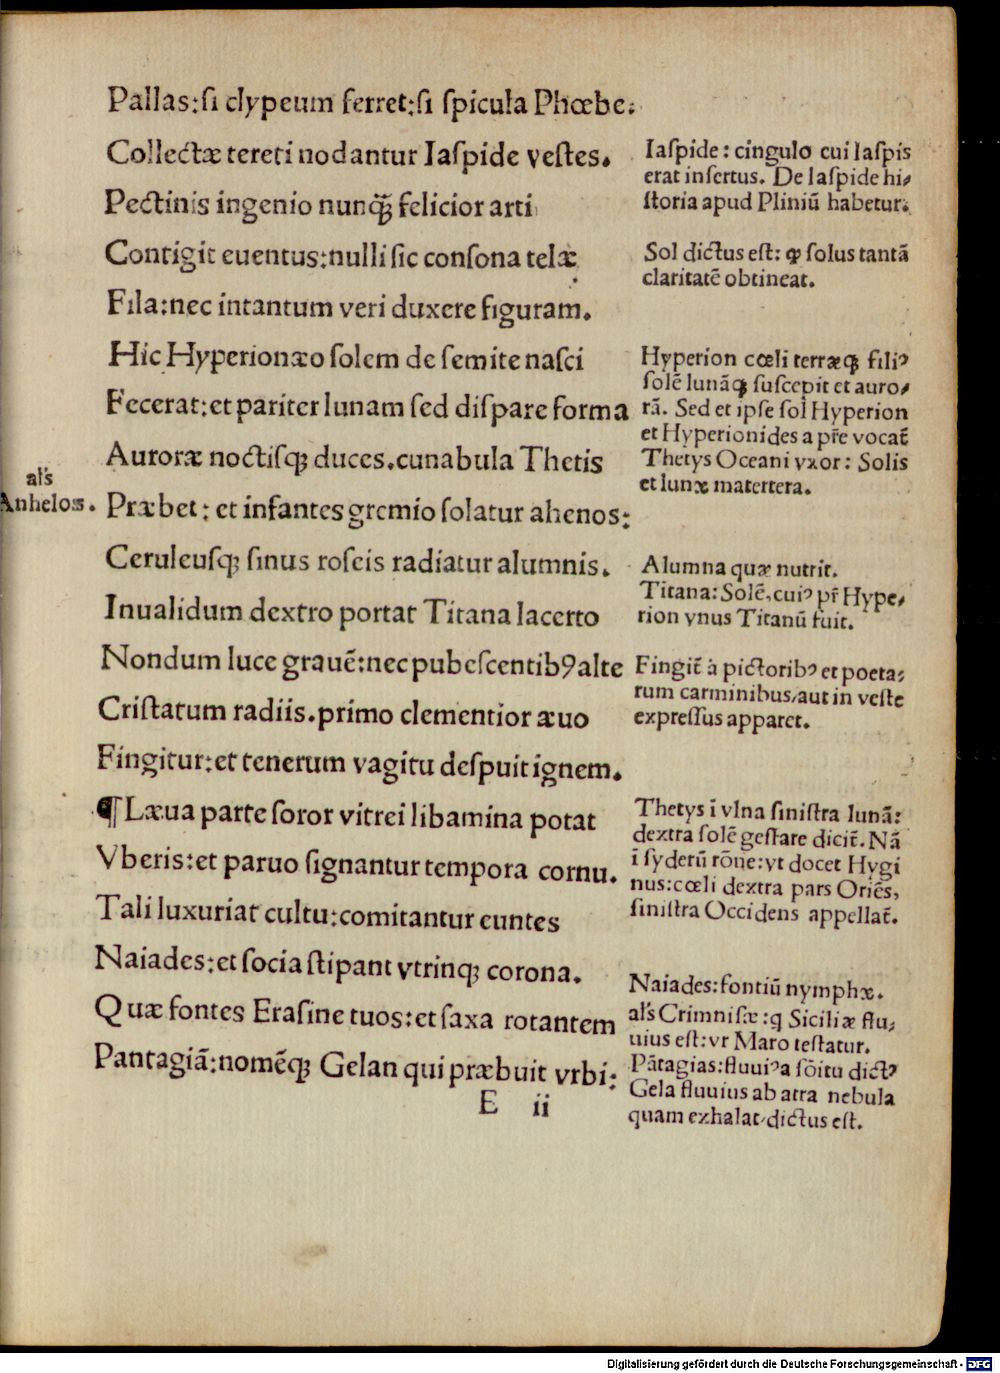 Pallas:ſi clypeum ferret:ſi ſpicula Phœbe.
Collectæ tereti nodantur Iaſpide veſtes.
Pectinis ingenio nunꝙ̃ felicior arti
Contigit euentus:nulli ſic conſona telæ
Fila:nec intantum veri duxere figuram.
Hic Hyperionæo ſolem de ſemite naſci
Fecerat:et pariter lunam ſed diſpare forma
Auroræ noctiſqꝫ duces.cunabula Thetis
Præbet: et infantes gremio ſolatur ahenos:
Ceruleuſqꝫ ſinus roſeis radiatur alumnis.
Inualidum dextro portat Titana lacerto
Nondum luce grauē:nec pubeſcentibꝰ alte
Criſtatum radiis.primo clementior æuo
Fingitur:et tenerum vagitu deſpuit ignem.
¶ Læua parte ſoror vitrei libamina potat
Vberis:et paruo ſignantur tempora cornu.
Tali luxuriat cultu:comitantur euntes
Naiades:et ſocia ſtipant vtrinqꝫ corona.
Quæ fontes Eraſine tuos:et ſaxa rotantem
Pantagiā:nomēqꝫ Gelan qui præbuit vrbi:
E ii
al's
Anhelos.
Iaſpide: cingulo cui Iaſpis
erat inſertus. De Iaſpide hi/
ſtoria apud Pliniū habetur.
Sol dictus eſt: ꝙ ſolus tantā
claritatē obtineat.
Hyperion cœli terræqꝫ filiꝰ
ſolē lunāqꝫ ſuſcepit et auro/
rā. Sed et ipſe ſol Hyperion
et Hyperionides a pr̃e vocat̃
Thetys Oceani vxor: Solis
et lunæ matertera.
Alumna quæ nutrit.
Titana: Solē, cuiꝰ pr̃ Hype/
rion vnus Titanū fuit.
Fingit̃ à pictoribꝰ et poeta/
rum carminibus, aut in veſte
expreſſus apparet.
Thetys ī vlna ſiniſtra lunā:
dextra ſolē geſtare dicit̃. Nā
ī ſyderū rōne: vt docet Hygi
nus: cœli dextra pars Oriēs,
ſiniſtra Occidens appellat̃.
Naiades: fontiū nymphæ.
al's Crimniſæ: q Siciliæ flu/
uius eſt: vt Maro teſtatur.
Pātagias: fluuiꝰ a ſōitu dictꝰ
Gela fluuius ab atra nebula
quam exhalat, dictus eſt.
Digitalisierung gefördert durch die Deutsche Forschungsgemeinschaft - DFG